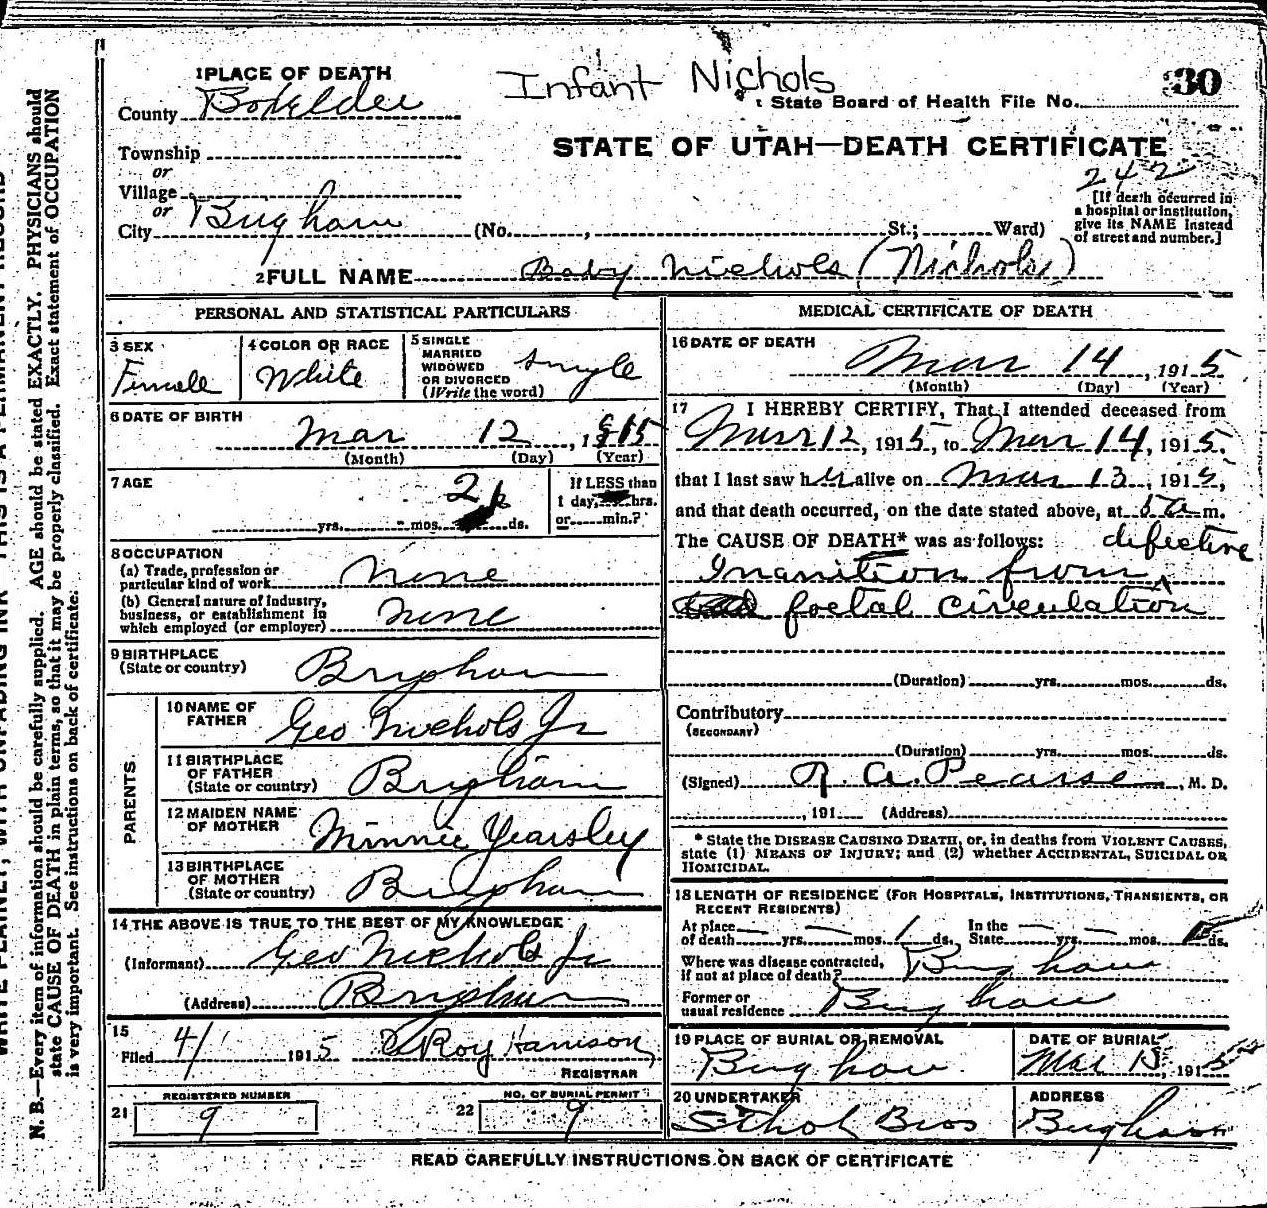 Infant Nichols
30
1 PLACE OF DEATH
County Boxelder
State Board of Health File No.
Township
or
Village
or
City Brigham (No. , St.; Ward)
STATE OF UTAH—DEATH CERTIFICATE
242
[If death occurred in
a hospital or institution,
give its NAME instead
of street and number.]
2 FULL NAME Baby Nichols (Nichols)
PERSONAL AND STATISTICAL PARTICULARS
3 SEX
Female
4 COLOR OR RACE
White
5 SINGLE
MARRIED
WIDOWED
OR DIVORCED
(Write the word)
Single
6 DATE OF BIRTH
Mar 12, 1915
(Month) (Day) (Year)
7 AGE
yrs. mos. 2 ds.
If LESS than
1 day, hrs.
or min.?
8 OCCUPATION
(a) Trade, profession or
particular kind of work none
(b) General nature of industry,
business, or establishment in
which employed (or employer) none
9 BIRTHPLACE
(State or country) Brigham
PARENTS
10 NAME OF
FATHER Geo Nichols Jr
11 BIRTHPLACE
OF FATHER
(State or country) Brigham
12 MAIDEN NAME
OF MOTHER Minnie Yearsley
13 BIRTHPLACE
OF MOTHER
(State or country) Brigham
14 THE ABOVE IS TRUE TO THE BEST OF MY KNOWLEDGE
(Informant) Geo Nichols Jr
(Address) Brigham
15
Filed 4/1 1915 Roy Harrison
REGISTRAR
21 REGISTERED NUMBER
9
22 NO. OF BURIAL PERMIT
9
MEDICAL CERTIFICATE OF DEATH
16 DATE OF DEATH
Mar 14, 1915
(Month) (Day) (Year)
17 I HEREBY CERTIFY, That I attended deceased from
Mar 12, 1915, to Mar 14, 1915,
that I last saw her alive on Mar 13, 1915,
and that death occurred, on the date stated above, at 5 a m.
The CAUSE OF DEATH* was as follows:
Inanition from ^ defective
foetal circulation
(Duration) yrs. mos. ds.
Contributory
(SECONDARY)
(Duration) yrs. mos. ds.
(Signed) R. A. Pearse, M. D.
, 191 (Address)
* State the DISEASE CAUSING DEATH, or, in deaths from VIOLENT CAUSES,
state (1) MEANS OF INJURY; and (2) whether ACCIDENTAL, SUICIDAL OR
HOMICIDAL.
18 LENGTH OF RESIDENCE (FOR HOSPITALS, INSTITUTIONS, TRANSIENTS, OR
RECENT RESIDENTS)
At place
of death — yrs. — mos. 1 ds. In the
State — yrs. — mos. ds.
Where was disease contracted,
if not at place of death? Brigham
Former or
usual residence Brigham
19 PLACE OF BURIAL OR REMOVAL
Brigham
DATE OF BURIAL
Mar 15, 1915
20 UNDERTAKER
Bros
ADDRESS
Brigham
READ CAREFULLY INSTRUCTIONS ON BACK OF CERTIFICATE
N. B.—Every item of information should be carefully supplied. AGE should be stated EXACTLY. PHYSICIANS should
state CAUSE OF DEATH in plain terms, so that it may be properly classified. Exact statement of OCCUPATION
is very important. See instructions on back of certificate.